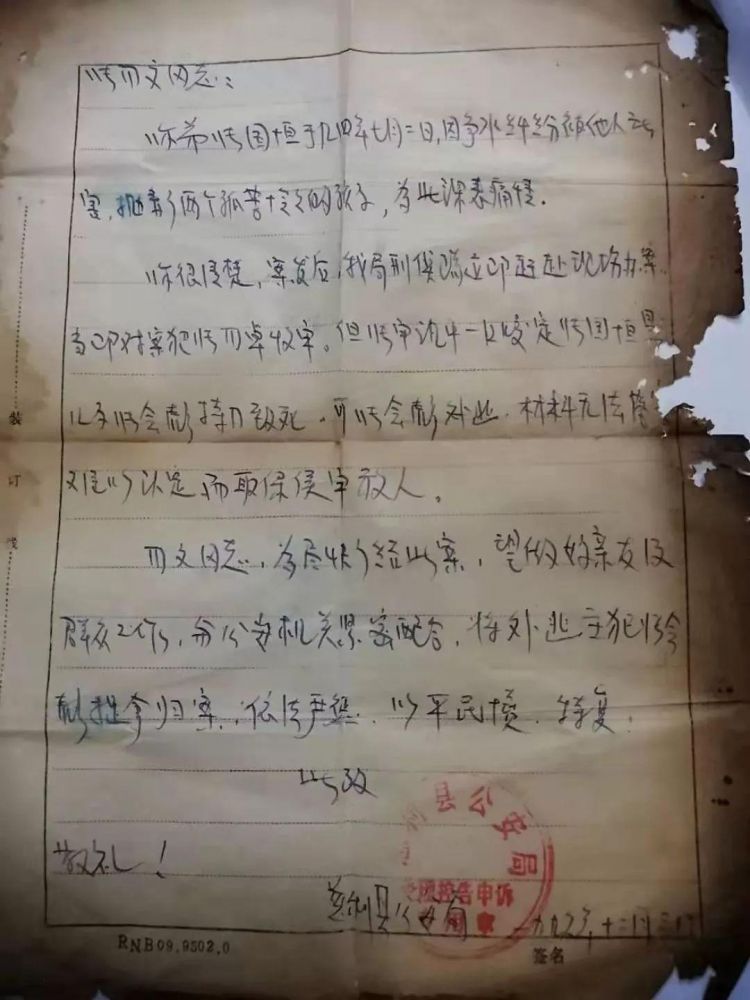 四文同志：
你弟国恒于九四年七月二日，因争水纠纷被他人
害，抛弃了两个孤苦伶仃的孩子，为此深表痛惜。
你很清楚，案发后，我局刑侦队立即赶赴现场办案
当即对案犯四卓收审。但审讯中一口咬定国恒是
儿子会彪持刀致死，可会彪外逃，材料无法
难以认定而取保候审放人。
四文同志，为尽快了结此案，望做好亲友及
群众工作，与公安机关紧密配合，将外逃主犯会
彪捉拿归案，依法严惩，以平民愤，特复！
此致
敬礼！
慈利县公安局
县公安局
控告申诉
装
订
线
RNB09.9502.0
签名